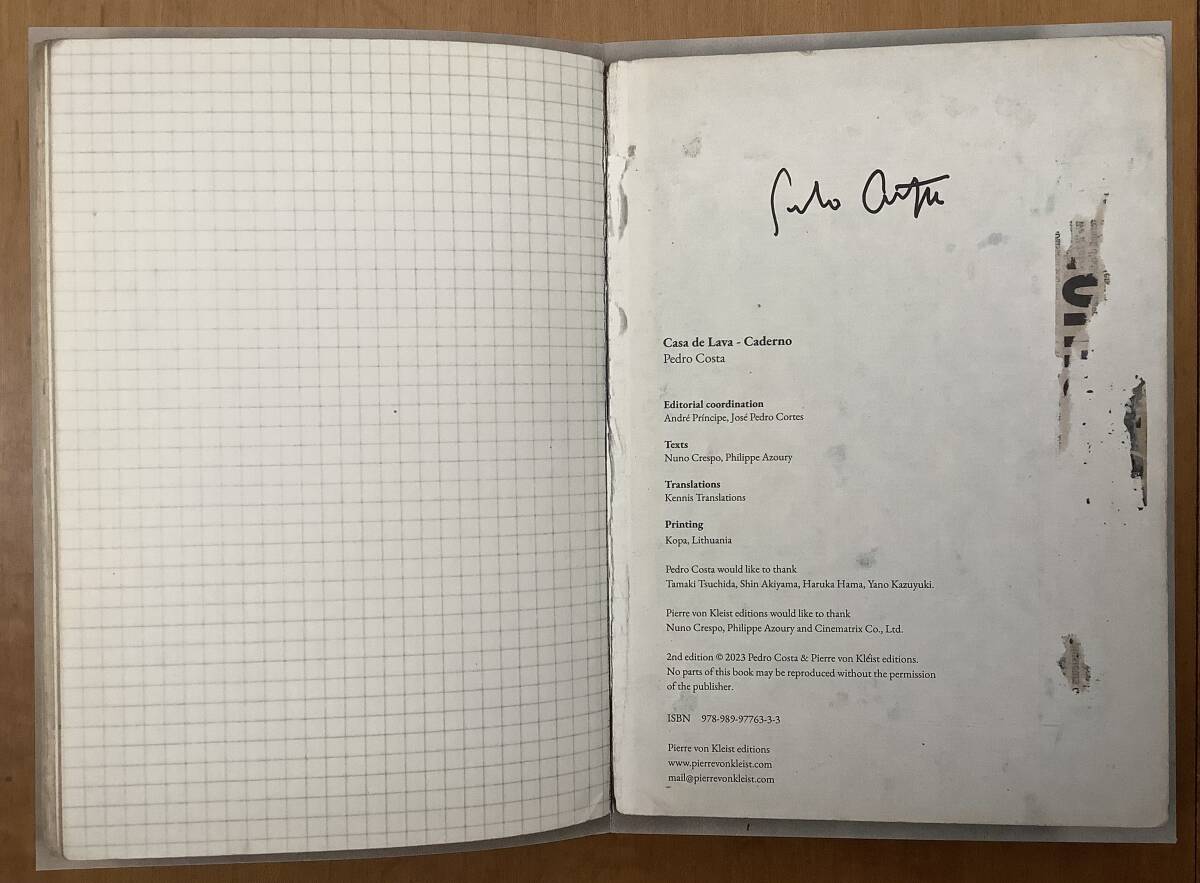 Casa de Lava - Caderno
Pedro Costa
Editorial coordination
André Príncipe, José Pedro Cortes
Texts
Nuno Crespo, Philippe Azoury
Translations
Kennis Translations
Printing
Kopa, Lithuania
Pedro Costa would like to thank
Tamaki Tsuchida, Shin Akiyama, Haruka Hama, Yano Kazuyuki.
Pierre von Kleist editions would like to thank
Nuno Crespo, Philippe Azoury and Cinematrix Co., Ltd.
2nd edition © 2023 Pedro Costa & Pierre von Kleist editions.
No parts of this book may be reproduced without the permission
of the publisher.
ISBN 978-989-97763-3-3
Pierre von Kleist editions
www.pierrevonkleist.com
mail@pierrevonkleist.com